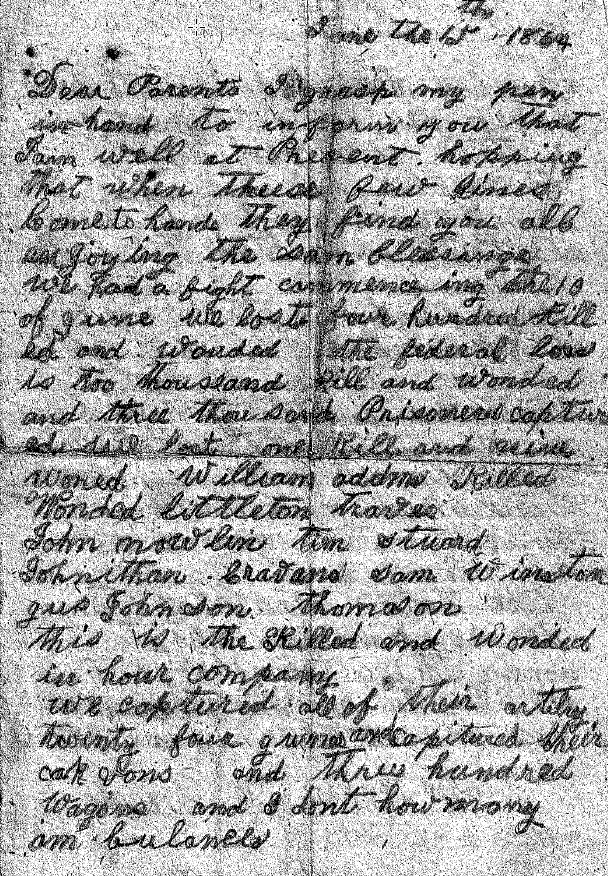 June the 15th 1864
Dear Parents I grasp my pen
in hand to inform you that
I am well at Present. hopping
that when theese few lines
Come to hand they find you all
enjoying the sam blessings
we had a fight commenceing the 10
of june we lost four hundred kill
ed and wonded the federal loss
is too thousand kill and wonded
and three thousand Prisoners captur
ed we lost one kill and nine
woned William addms Killed
Wonded littleton traves
John nowlin tim stuard
Johnithan. Cravans sam Winston
gus Johnson. thomason
this is the Killed and wonded
in hour company
we captured all of their artilry
twenty four guns and captured their
and three hundred
Wagins and I dont how many
am bulances